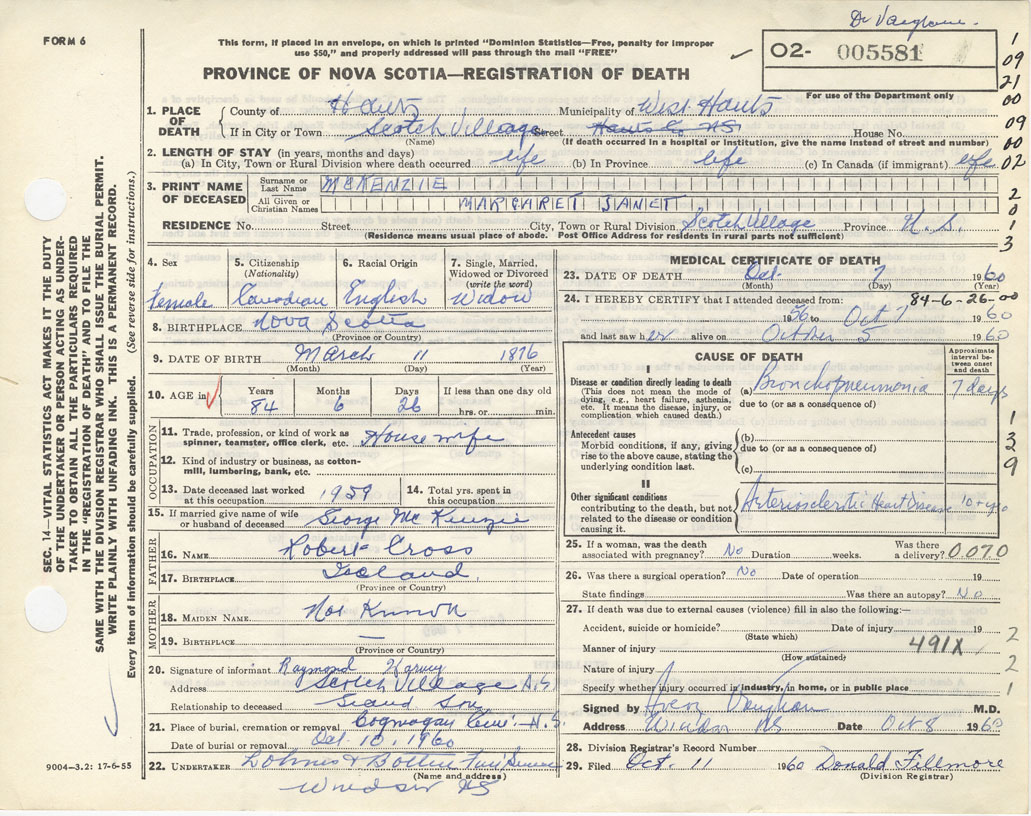 Dr Vaughan
FORM 6
This form, if placed in an envelope, on which is printed "Dominion Statistics—Free, penalty for improper
use $50," and properly addressed will pass through the mail "FREE"
02- 005581
For use of the Department only
PROVINCE OF NOVA SCOTIA—REGISTRATION OF DEATH
1. PLACE OF DEATH County of Hants Municipality of West Hants
If in City or Town Scotch Village Street Hants Co NS House No.
(Name) (If death occurred in a hospital or institution, give the name instead of street and number)
2. LENGTH OF STAY (in years, months and days)
(a) In City, Town or Rural Division where death occurred life (b) In Province life (c) In Canada (if immigrant) life
3. PRINT NAME OF DECEASED Surname or Last Name MCKENZIE
All Given or Christian Names MARGARET JANET
RESIDENCE No. Street City, Town or Rural Division Scotch Village Province N.S.
(Residence means usual place of abode. Post Office Address for residents in rural parts not sufficient)
4. Sex female
5. Citizenship (Nationality) Canadian
6. Racial Origin English
7. Single, Married, Widowed or Divorced (write the word) Widow
8. BIRTHPLACE Nova Scotia
(Province or Country)
9. DATE OF BIRTH March 11 1876
(Month) (Day) (Year)
10. AGE in Years 84 Months 6 Days 26 If less than one day old hrs. or min.
OCCUPATION
11. Trade, profession, or kind of work as spinner, teamster, office clerk, etc. House wife
12. Kind of industry or business, as cotton-mill, lumbering, bank, etc.
13. Date deceased last worked at this occupation 1959 14. Total yrs. spent in this occupation
15. If married give name of wife or husband of deceased George McKenzie
FATHER
16. NAME Robert Cross
17. BIRTHPLACE
(Province or Country)
MOTHER
18. MAIDEN NAME Not Known
19. BIRTHPLACE —
(Province or Country)
20. Signature of informant Raymond Harvey
Address Scotch Village N.S.
Relationship to deceased Grand Son
21. Place of burial, cremation or removal Cogmagun Cem. N.S.
Date of burial or removal Oct. 10, 1960
22. UNDERTAKER Lohnes &
(Name and address)
Windsor NS
MEDICAL CERTIFICATE OF DEATH
23. DATE OF DEATH Oct. 7 1960
(Month) (Day) (Year)
24. I HEREBY CERTIFY that I attended deceased from: 84-6-26-00
1956 to Oct 7 1960
and last saw her alive on October 5 1960
CAUSE OF DEATH
Approximate interval between onset and death
I
Disease or condition directly leading to death
(This does not mean the mode of dying, e.g., heart failure, asthenia, etc. It means the disease, injury, or complication which caused death.)
(a) Bronchopneumonia 7 days
due to (or as a consequence of)
Antecedent causes
Morbid conditions, if any, giving rise to the above cause, stating the underlying condition last.
(b)
due to (or as a consequence of)
(c)
II
Other significant conditions
contributing to the death, but not related to the disease or condition causing it.
Arteriosclerotic Heart Disease 10+ yrs
25. If a woman, was the death associated with pregnancy? No Duration weeks. Was there a delivery? 0.070
26. Was there a surgical operation? No Date of operation 19
State findings Was there an autopsy? No
27. If death was due to external causes (violence) fill in also the following:—
Accident, suicide or homicide? Date of injury 19
(State which)
Manner of injury 491X
(How sustained)
Nature of injury
Specify whether injury occurred in industry, in home, or in public place
Signed by Vaughan M.D.
Address Windsor NS Date Oct 8 1960
28. Division Registrar's Record Number
29. Filed Oct. 11 1960 Donald Fillmore
(Division Registrar)
1
09
21
00
09
00
02
2
0
1
3
1
3
2
9
2
2
1
SEC. 14—VITAL STATISTICS ACT MAKES IT THE DUTY
OF THE UNDERTAKER OR PERSON ACTING AS UNDER-
TAKER TO OBTAIN ALL THE PARTICULARS REQUIRED
IN THE "REGISTRATION OF DEATH" AND TO FILE THE
SAME WITH THE DIVISION REGISTRAR WHO SHALL ISSUE THE BURIAL PERMIT.
WRITE PLAINLY WITH UNFADING INK. THIS IS A PERMANENT RECORD.
Every item of information should be carefully supplied. (See reverse side for instructions.)
9004—3.2: 17-6-55